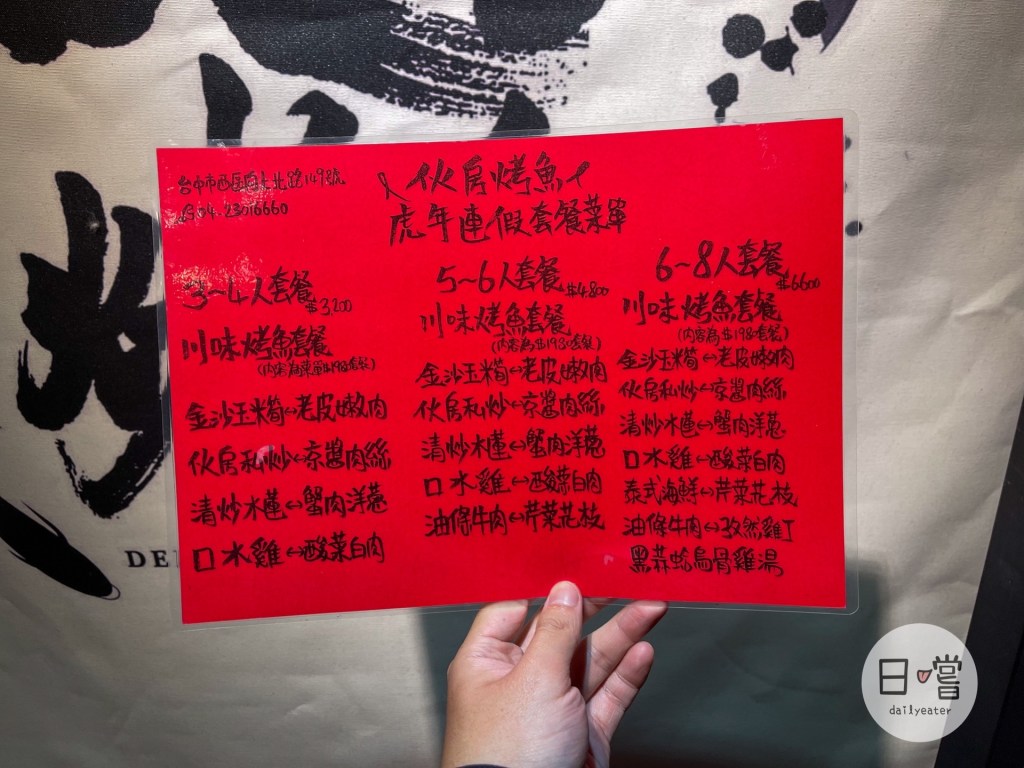 台中市西區向上北路149號
04.23016660
伙房烤魚
虎年連假套餐菜單
3~4人套餐
$3,200
川味烤魚套餐
(內容為菜單$1980套餐)
金沙玉米筍↔老皮嫩肉
伙房私炒↔京醬肉絲
清炒水蓮↔蟹肉洋蔥
口水雞↔酸菜白肉
5~6人套餐
$4,800
川味烤魚套餐
(內容為$1980套餐)
金沙玉米筍↔老皮嫩肉
伙房私炒↔京醬肉絲
清炒水蓮↔蟹肉洋蔥
口水雞↔酸菜白肉
油條牛肉↔芹菜花枝
6~8人套餐
$6600
川味烤魚套餐
(內容為$1980套餐)
金沙玉米筍↔老皮嫩肉
伙房私炒↔京醬肉絲
清炒水蓮↔蟹肉洋蔥
口水雞↔酸菜白肉
泰式海鮮↔芹菜花枝
油條牛肉↔孜然雞丁
黑蒜蛤烏骨雞湯
DE
日嚐
dailyeater